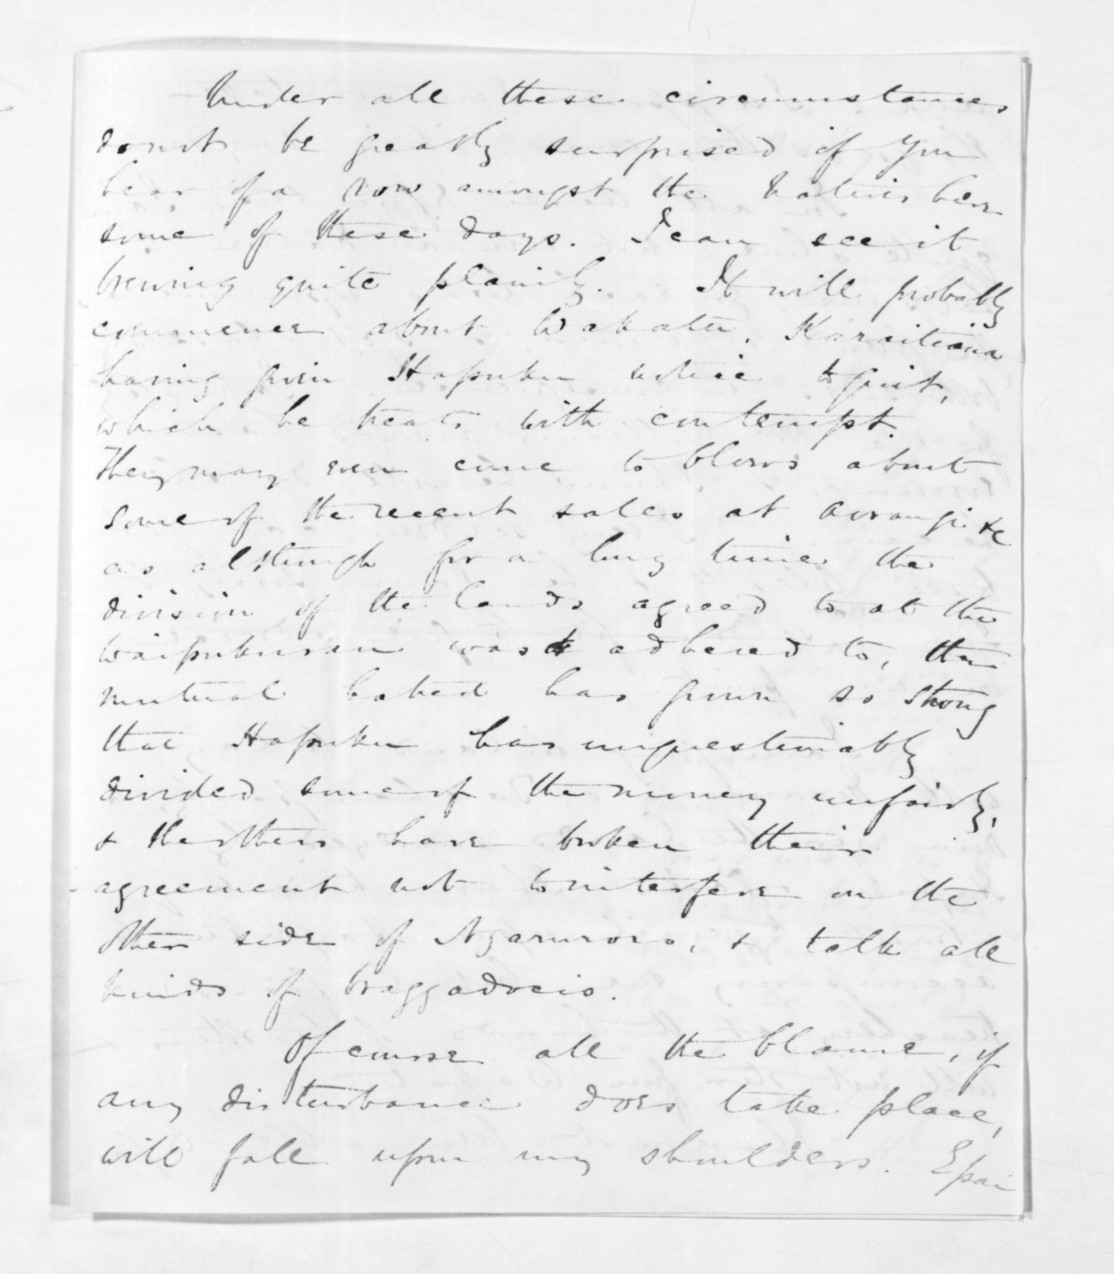 Under all these circumstances
do not be greatly surprised if you
hear of a row amongst the Natives here
some of these days. I can see it
brewing quite plainly. It will probably
commence about Wakatu, Karaitiana
having given Hapuku notice to quit,
which he treats with contempt.
They may even come to blows about
some of the recent sales at Aorangi &c
as although for a long time the
division of the lands agreed to at the
Waipukurau was adhered to, the
mutual hatred has grown so strong
that Hapuku has unquestionably
divided some of the money unfairly,
& the others have broken their
agreement not to interfere on the
other side of Ngaruroro, & talk all
kinds of braggadocio.
Of course all the blame, if
any disturbance does take place,
will fall upon my shoulders. E pai